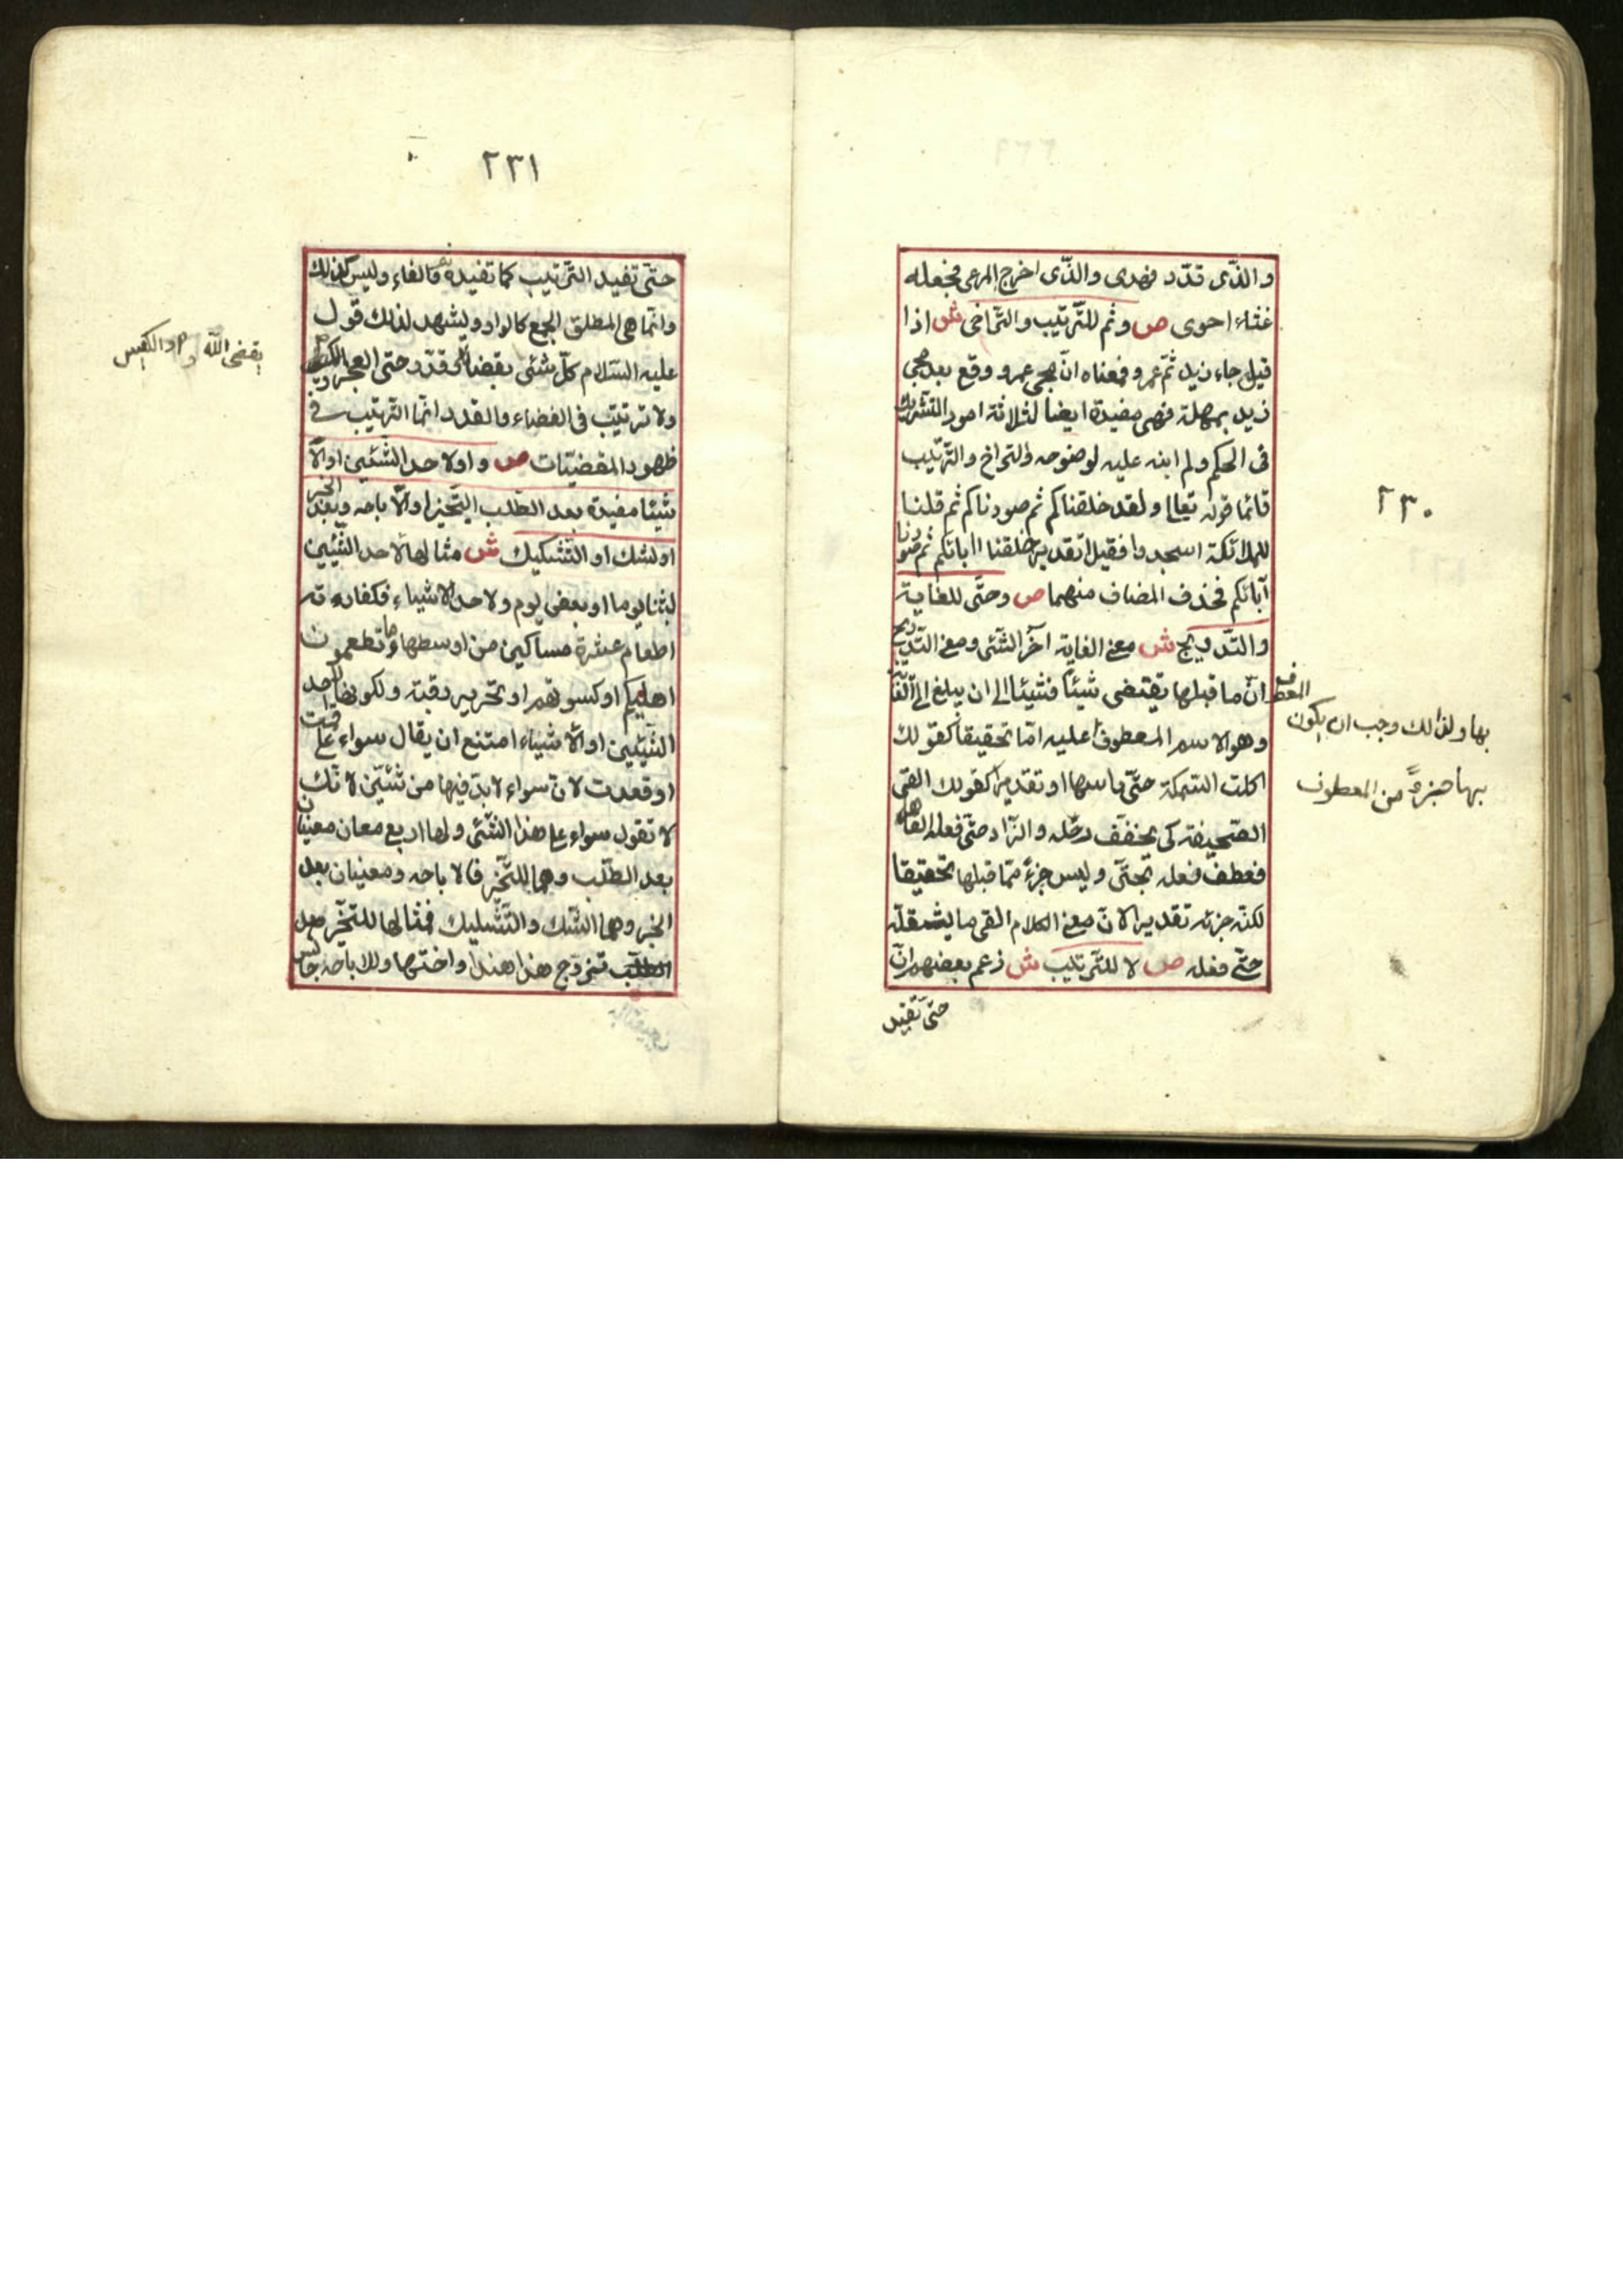 ٢٣٠
والذى قدّر فهدى والذّى اخرج المرعى فجعله
غثاء احوى ص وثم للترتيب والتراخى ش اذا
قيل جاء زيد ثم عمرو فمعناه انّ مجى عمرو وقع بعد مجى
زيد بمهلة فهى مفيدة ايضا لثلاثة امور التشريك
فى الحكم ولم انبه عليه لوضوحه والتراخ والترتيب
قائما قوله تعالى ولقد خلقناكم ثم صورناكم ثم قلنا
للملائكة اسجدوا فقيل تقديره خلقنا اباتكم ثم صورنا
آبائكم فحذف المضاف منهما ص وحتّى للغاية
والتّدريج ش معنى الغاية آخر الشئى ومعنى التّدريج
انّ ما قبلها يقتضى شيئًا فشيئا الى ان يبلغ الى الغا
وهو الاسم المعطوف عليه امّا تحقيقا كقولك
اكلت السّمكة حتّى راسها او تقديرا كقولك القى
الصّحيفة كى يخفف رحله والزّاد حتّى نعله القاها
فعطف نعله بحتّى وليس جزءً ممّا قبلها تحقيقا
لكنّه جزئه تقديرا لانّ معنى الكلام القى ما يشقله
حتّى نعله ص لا للتّرتيب ش زعم بعضهم انّ
حتى تفيد
المعطوف
بها ولذالك وجب ان يكون
بها جزءً من المعطوف
٢٣١
حتّى تفيد التّرتيب كما تفيده ثم والفاء وليس كذلك
وانّما هى لمطلق الجمع كالواو ويشهد لذلك قول
عليه السّلام كلّ شئى بقضاء وقدر حتى العجز والكيس
ولا ترتيب فى القضاء والقدر انّما التّرتيب فى
ظهور المقضيّات ص واو لاحد الشّئين او الا
شيئا مفيدة بعد الطّلب التّخير او الاباحه وبعد الخبر
او لشك او التّشكيك ش مثالها لاحد الشّئين
لبثنا يوما او بعض يوم ولاحد الاشياء فكفارته
اطعام عشرة مساكين من اوسط ما تطعمون
اهليكم او كسوتهم او تحرير رقبة ولكونها لاحد
الشّيئين او الاشياء امتنع ان يقال سواء علىّ قمت
او قعدت لانّ سواء لابدّ فيها من شئيّن لانّك
لا تقول سواء على هذا الشّئى ولها اربع معان معنيان
بعد الطّلب وهما للتّخير والاباحه ومعنيان بعد
الخبر وهما الشّك والتّشكيك فمثالها للتّخير بعد
الطّلب تزوّج هندا او اختها وللاباحه جالس
يقضى الله والكيس